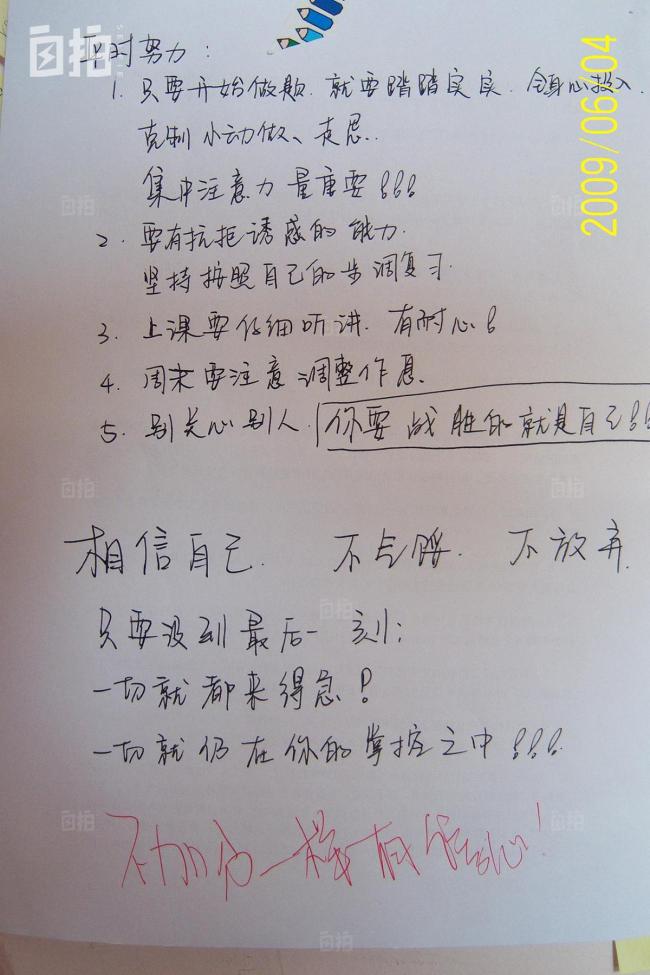 自拍
SELFIE
2009/06/04
平时努力:
1. 只要开始做题. 就要踏踏实实. 全身心投入.
克制小动做、走思..
集中注意力 最重要!!!
2. 要有抗拒诱惑的能力.
坚持按照自己的步调复习.
3. 上课要仔细听讲. 有耐心!
4. 周末要注意调整作息.
5. 别关心别人. 你要战胜的就是自己!!
相信自己. 不气馁. 不放弃.
只要没到最后一刻;
一切就都来得急!
一切就仍在你的掌控之中!!!
不加分一样有信心!